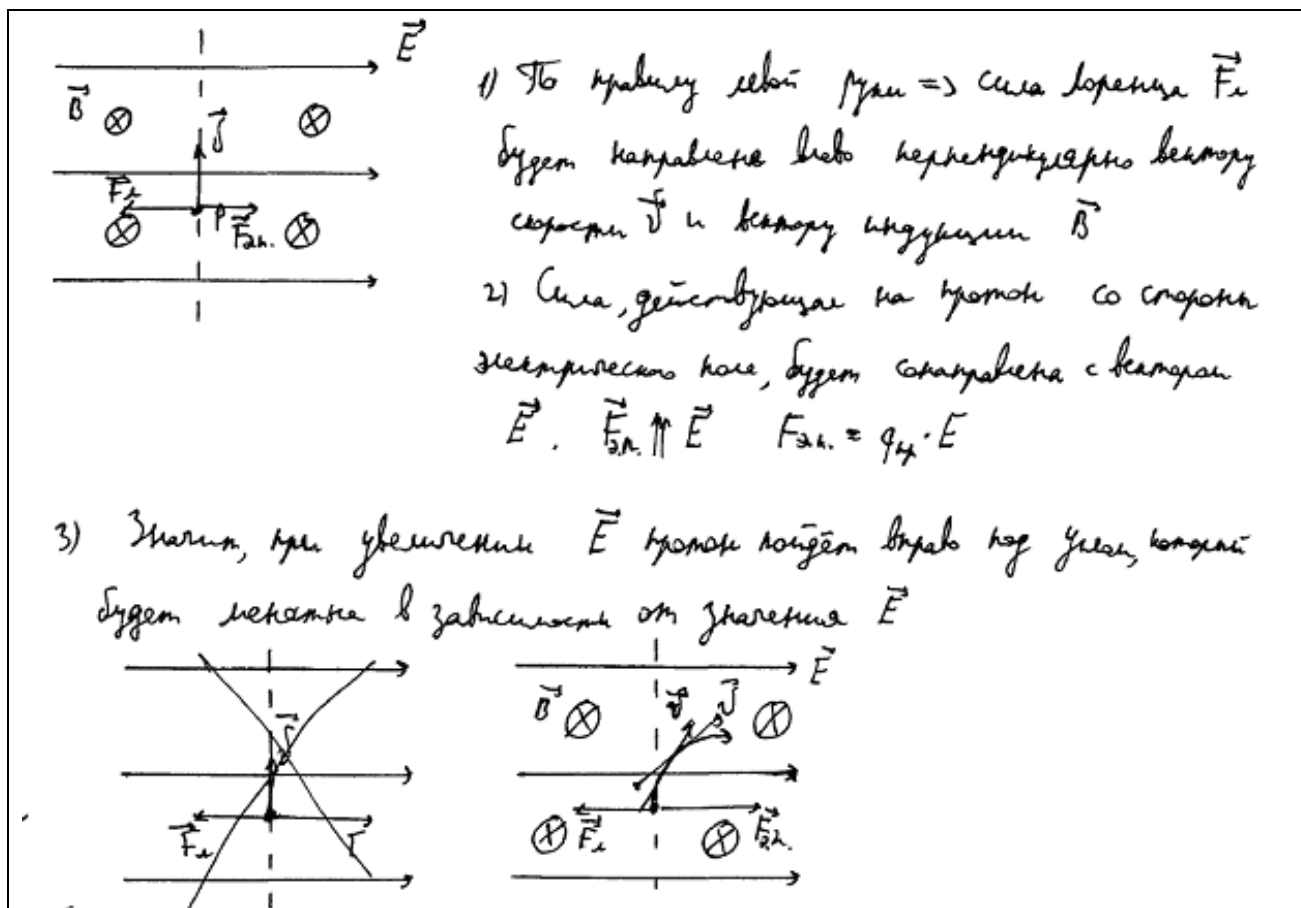 E
B
v
Fл
p Fэ.п.
1) По правилу левой руки => сила Лоренца Fл
будет направлена влево перпендикулярно вектору
скорости v и вектору индукции B
2) Сила, действующая на протон со стороны
электрического поля, будет сонаправлена с вектором
E. Fэ.п. ⇈ E Fэ.п. = qпр · E
3) Значит, при увеличении E протон пойдёт вправо под углом, который
будет меняться в зависимости от значения E
v
Fл
E
B v v
Fл Fэ.п.